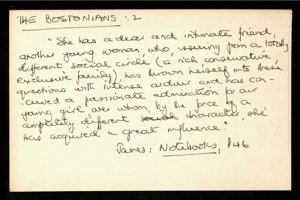 THE BOSTONIANS : 2
"She has a dear and intimate friend,
another young woman, who, issuing from a totally
different social circle (a rich conservative
exclusive family), has thrown herself into these
questions with intense ardour and has con-
ceived a passionate admiration for our
young girl over whom, by the force of a
completely different character, she
has acquired a great influence."
James: Notebooks, p46